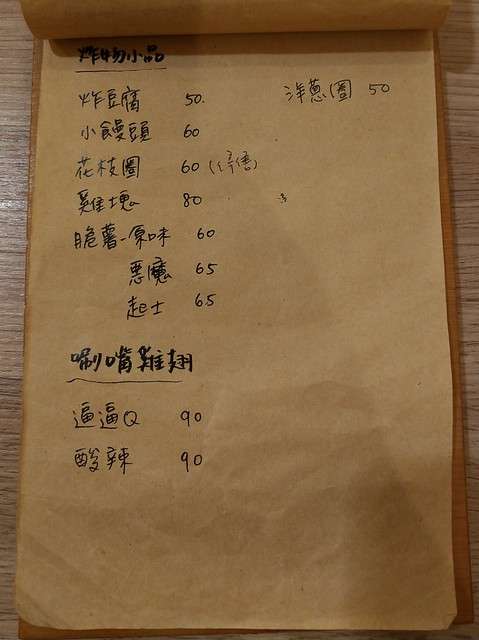 炸物小品
炸豆腐 50. 洋蔥圈 50
小饅頭 60
花枝圈 60 (停售)
雞塊 80
脆薯-原味 60
惡魔 65
起士 65
唰嘴雞翅
逼逼Q 90
酸辣 90